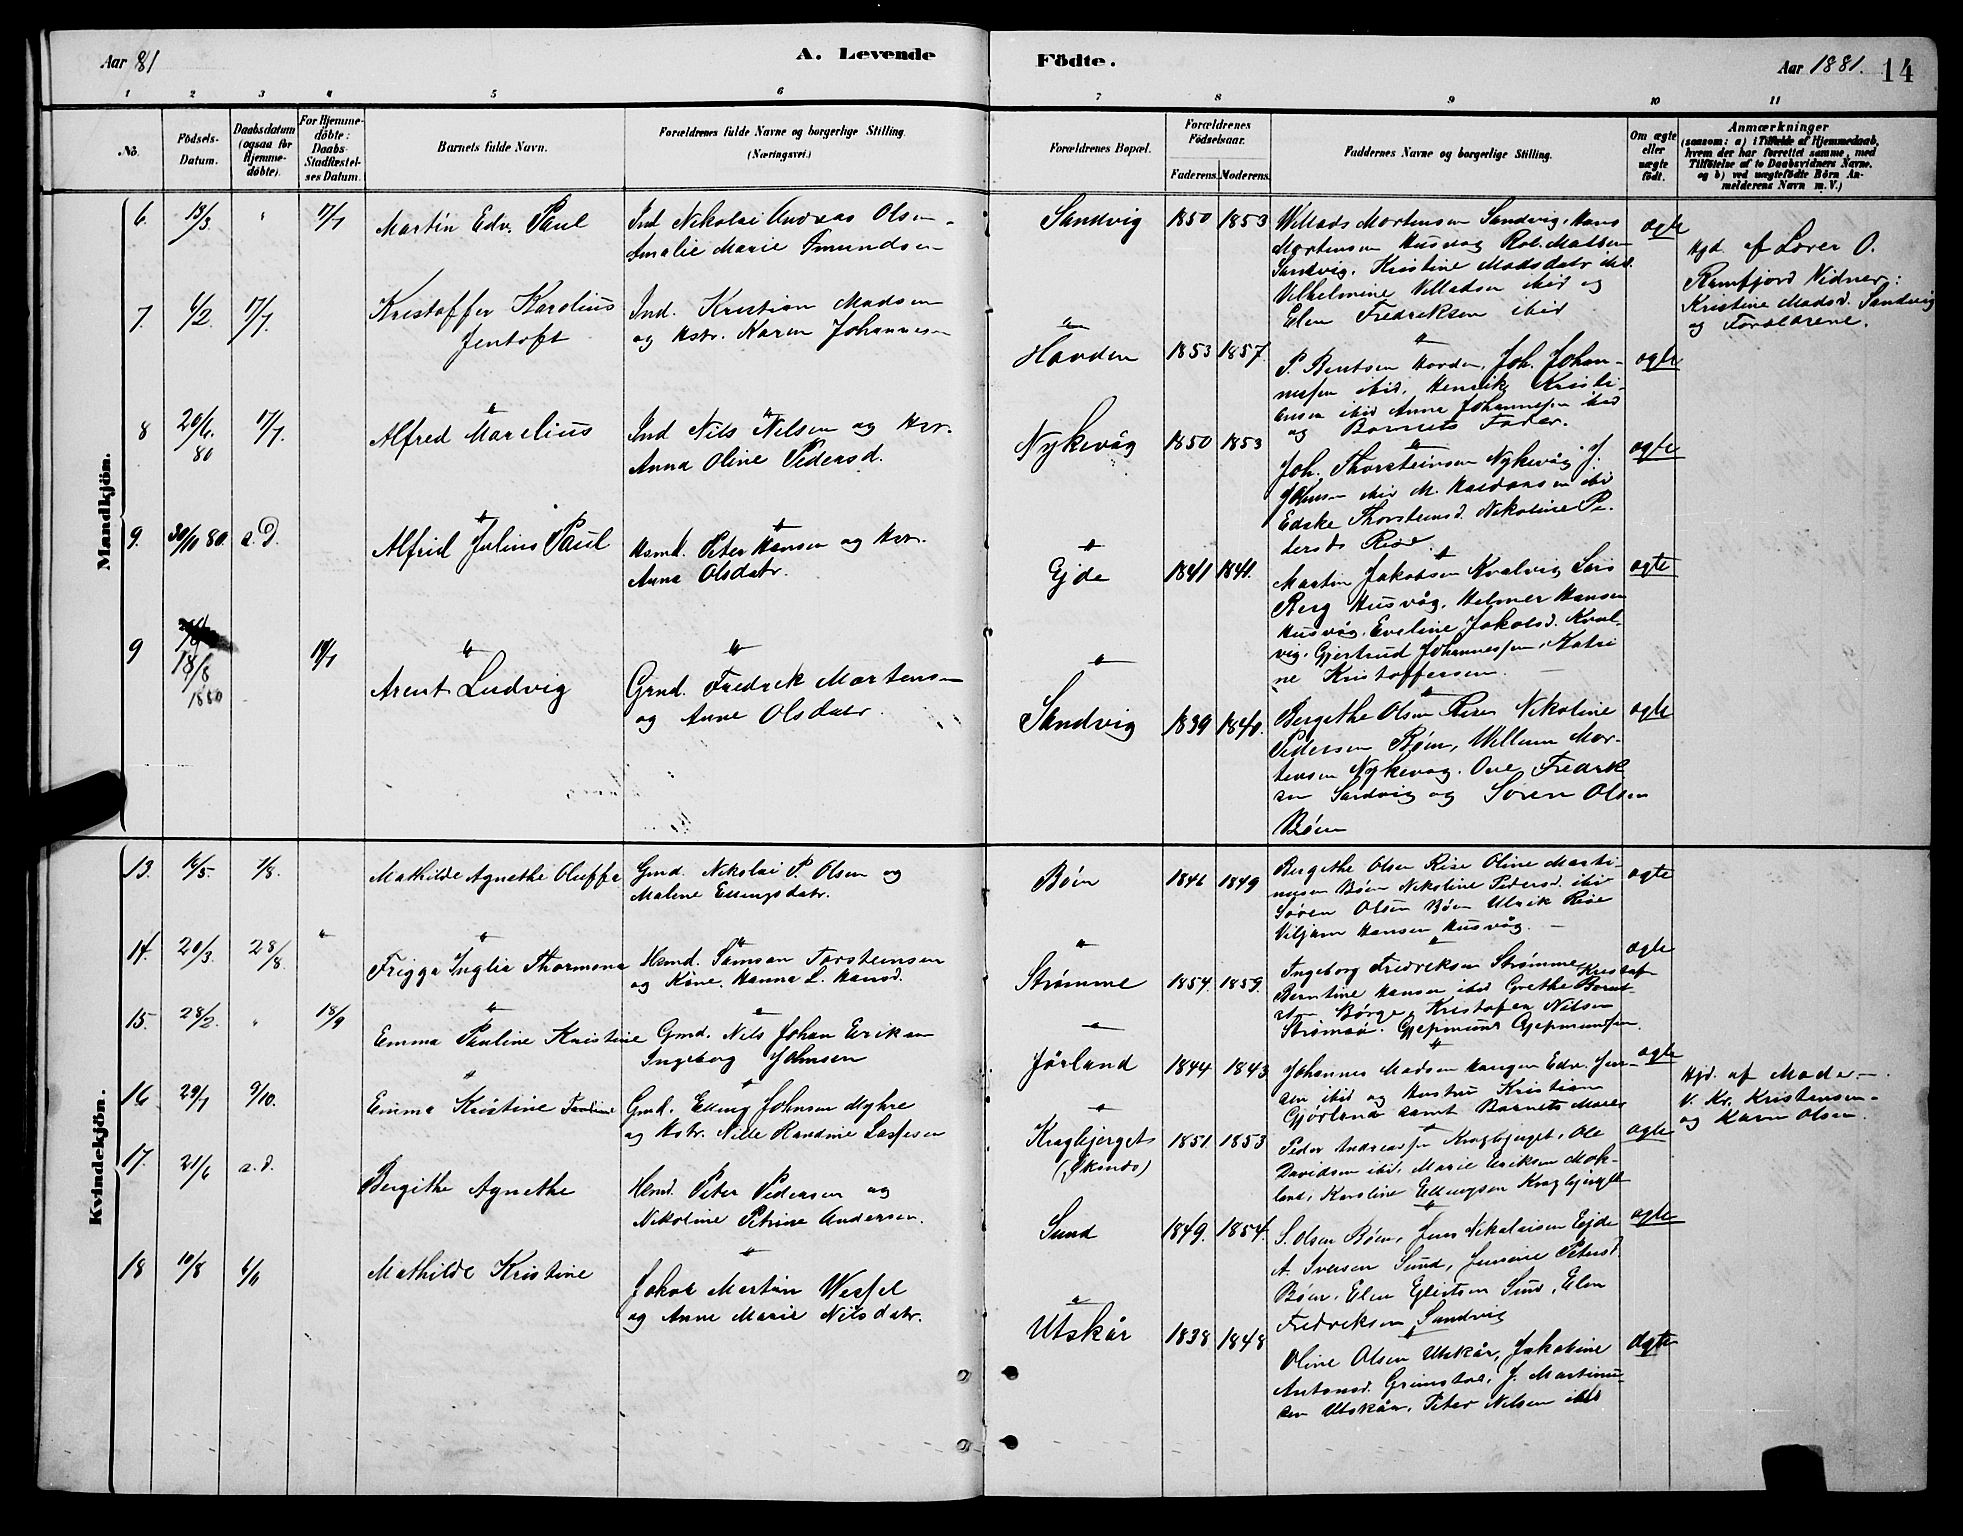 Aar 81
A. Levende
Födte.
Aar 1881.
14
1 2 3 4 5 6 7 8 9 10 11
No.
Födsels-
Datum.
Daabsdatum
(ogsaa for
Hjemme-
döbte).
For Hjemme-
döbte:
Daabs-
Stadfæstel-
ses Datum.
Barnets fulde Navn.
Forældrenes fulde Navne og borgerlige Stilling.
(Næringsvei.)
Forældrenes Bopæl.
Forældrenes
Födselsaar.
Faderens. Moderens.
Faddernes Navne og borgerlige Stilling.
Om ægte
eller
uægte
födt.
Anmærkninger
(saasom: a) i Tilfælde af Hjemmedaab,
hvem der har forrettet samme, med
Tilföielse af to Daabsvidners Navne.
og b) ved uægtefödte Börn An-
melderens Navn m. V.)
Mandkjön.
6. 13/3 " 17/7 Martin Edv. Paul
Ind Nikolai Andreas Olsen
Amalie Marie Amundsen
Sandvig 1850 1853
Willads Mortensen Sandvig, Hans
Mortensen Husvåg Rob. Madsen
Sandvig, Kristine Madsdatr ibid
Vilhelmine Villadsen ibid og
Elen Fredriksen ibid
ægte
Hjd. af Lærer O.
Ramfjord Vidner:
Kristine Madsd. Sandvig
og Forældrene.
7. 6/2 17/7 Kristoffer Karolius
Jentoft
Ind. Kristian Madsen
og Hstr. Karen Johannesen
Hovden 1853 1857.
P. Bentsen Hovden, Joh. Johan-
nesen ibid, Henrik Kristi-
ansen ibid Anna Johannesen ibid
og Barnets Fader.
ægte
8 20/6 80 17/7. Alfred Marelius
Ind Nils Nilsen og Hr.
Anna Oline Pedersd.
Nykevåg 1850 1853
Joh. Thorsteinsen Nykevåg J.
Johnsen ibid M. Haldorsen ibid
Edske Thorsteinsd. Nikoline Pe-
dersd. Rise
ægte
9. 30/10 80. s.D. Alfrid Julius Paul
Hsmd. Peter Hansen og Hr.
Anna Olsdatr.
Ejde 1841 1841.
Martin Jakobsen Kvalvig Lars
Berg Husvåg, Helmer Hansen
Husvåg, Eveline Jakobsd. Kval-
vig, Gjertrud Johannessen, Katri
ne Kristoffersen
ægte
9 18/8 1880 17/7 Arent Ludvig
Grnd. Fredrik Mortensen
og Anne Olsdatr.
Sandvig 1839 1840.
Bergithe Olsen Rise Nikoline
Pedersen Bøen, Willum Mor-
tensen Nykevåg. Ove Fredrik
sen Sandvig og Søren Olsen
Bøen
ægte
Kvindekjön.
13. 16/5. 7/8. Mathilde Agnethe Oluffa
Gmd. Nikolai P. Olsen og
Malene Ellingsdatr.
Bøen 1846 1849
Bergithe Olsen Rise Oline Marti-
nusen Bøen Nikoline Pedersd. ibid
Søren Olsen Bøen Ulrik Rise
Viljam Hansen Husvåg.
ægte
14. 20/3. 28/8. " Frigga Inglia Thormona
Hsmd. Samson Torsteinsen
og Kone, Hanna L. Hansd.
Strømme 1854. 1859.
Ingeborg Fredriksen Strømme
Berntine Hansen ibid Grethe Bernt-
sen Börge, Kristofer Nilsen
Strømsø. Gjepmund Gjepmundsen.
ægte
15. 28/2. " 18/9 Emma Pauline Kristine
Gmd. Nils Johan Eriksen
Ingeborg Johnsen
Jørland 1844 1843
Johannes Madsen Haugen Edv. Jen-
sen ibid og Hustru Kristian
Gjørland samt Barnets Moder
ægte
Hjd. af Moder-
V. Kr. Kristensen-
og Karen Olsen.
16 29/7 9/10. Emma Kristine Pauline
Gmd. Elling Johnsen Myhre
og Hstr. Nille Randine Lassesen
Kragbjerget 1851. 1853
(Øksnæs)
Peder Andreassen Kragbjerget, Ole
Davidsen ibid, Marie Eriksen Mok-
land, Karoline Ellingsen Kragbjerget
ægte
17. 21/6 s.d. Bergithe Agnethe
Hsmd. Peter Pedersen og
Nikoline Petrine Andersen.
Sund 1849. 1854.
S. Olsen Bøen, Jens Nikolaisen Ejde
A. Iversen Sund, Jensine Petersd
Bøen, Elen Ellertsen Sund, Elen
Fredriksen, Sandvig
ægte
18 10/8 6/11 Mathilde Kristine
Jakob Martin Wessel
og Anne Marie Nilsdatr.
Utskår 1838 1848
Oline Olsen Utskår, Jakobine
Antonsd. Grimstad, J. Martinu-
sen Utskår, Peter Nilsen ibid
ægte